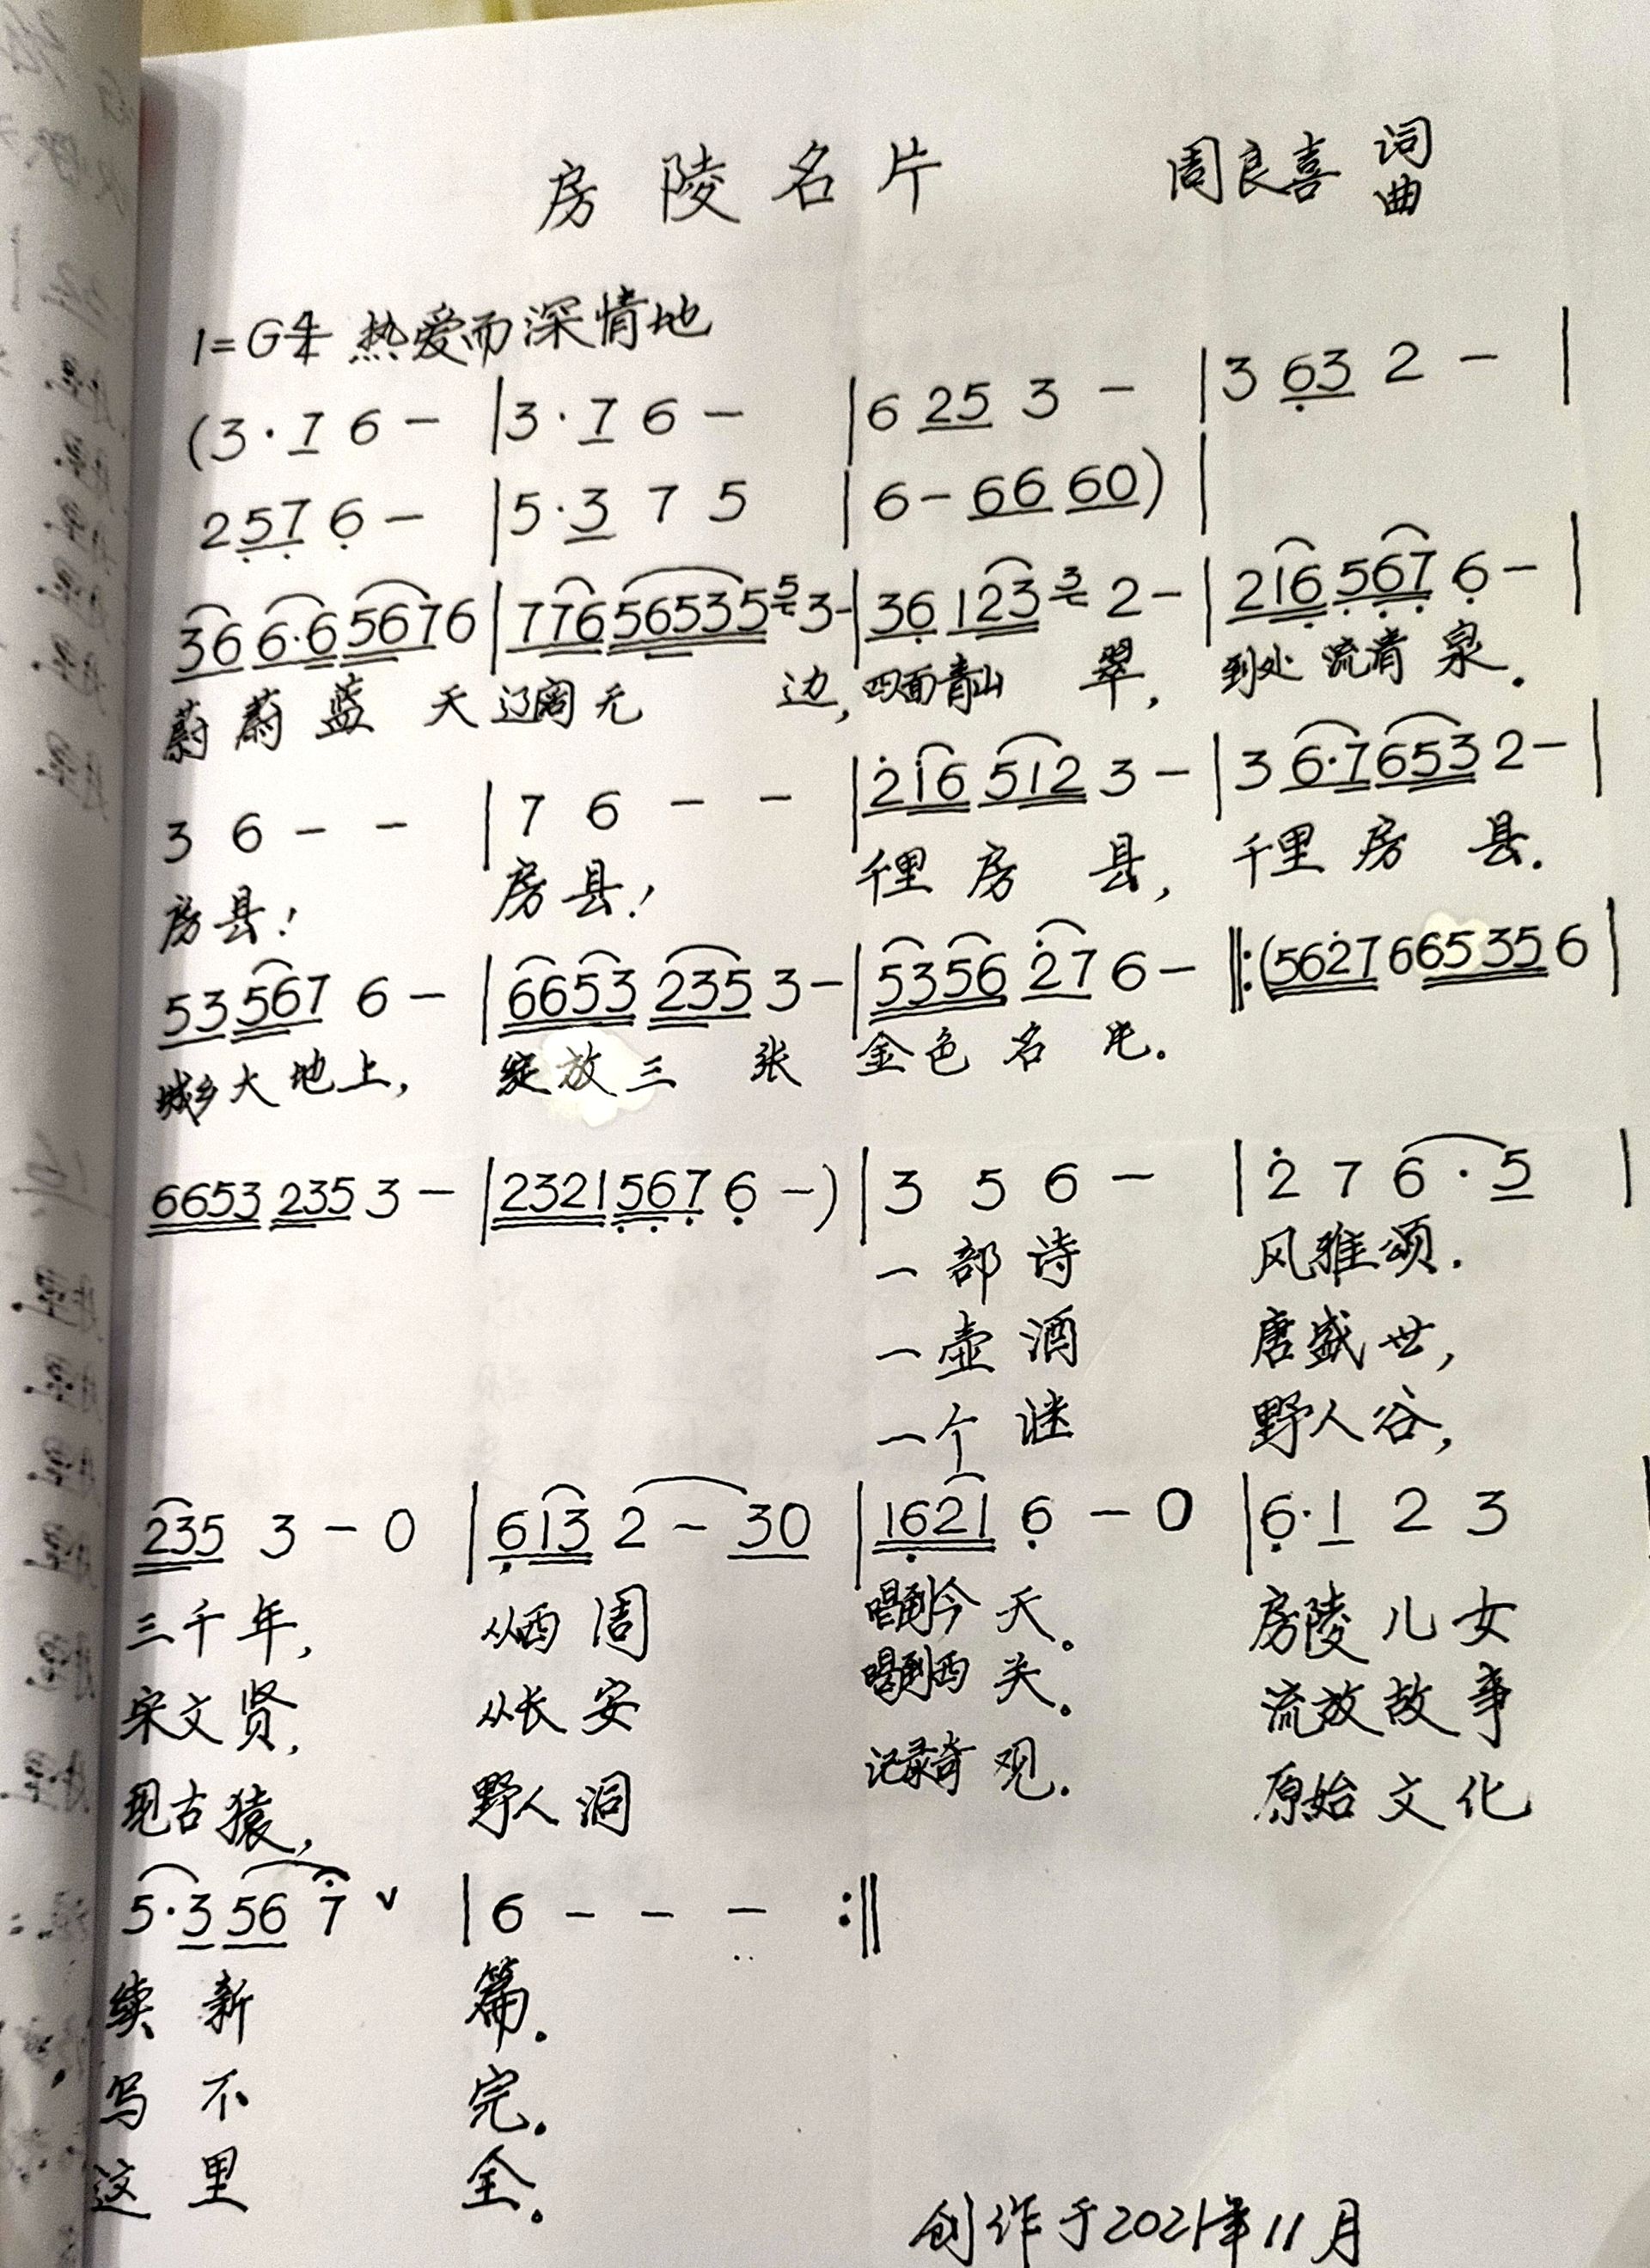 房陵名片 周良喜 词曲
1=G 4/4 热爱而深情地
(3·7 6 - |3·7 6 - |6 25 3 - |3 63 2 - |
257 6 - |5·3 7 5 |6 - 66 60) |
36 6·6 5676 |776 56535 5 3 - |36 123 3 2 - |216 567 6 - |
蔚蔚蓝天辽阔无边,四面青山翠,到处流清泉.
3 6 - - |7 6 - - |216 512 3 - |3 6·7 653 2 - |
房县! 房县! 千里房县, 千里房县.
53 567 6 - |6653 235 3 - |5356 27 6 - ‖:(5627 665 35 6 |
城乡大地上, 绽放三张 金色名片.
6653 235 3 - |2321 567 6 -) |3 5 6 - |2 7 6 · 5 |
一部诗 风雅颂.
一壶酒 唐盛世,
一个谜 野人谷,
235 3 - 0 |613 2 - 30 |1621 6 - 0 |6·1 2 3
三千年, 从西周 唱到今天。 房陵儿女
宋文贤, 从长安 唱到西关。 流放故事
现古猿, 野人洞 记录奇观. 原始文化
5·3 56 7 v |6 - - - :‖
续新 篇.
写不 完.
这里 全.
创作于2021年11月